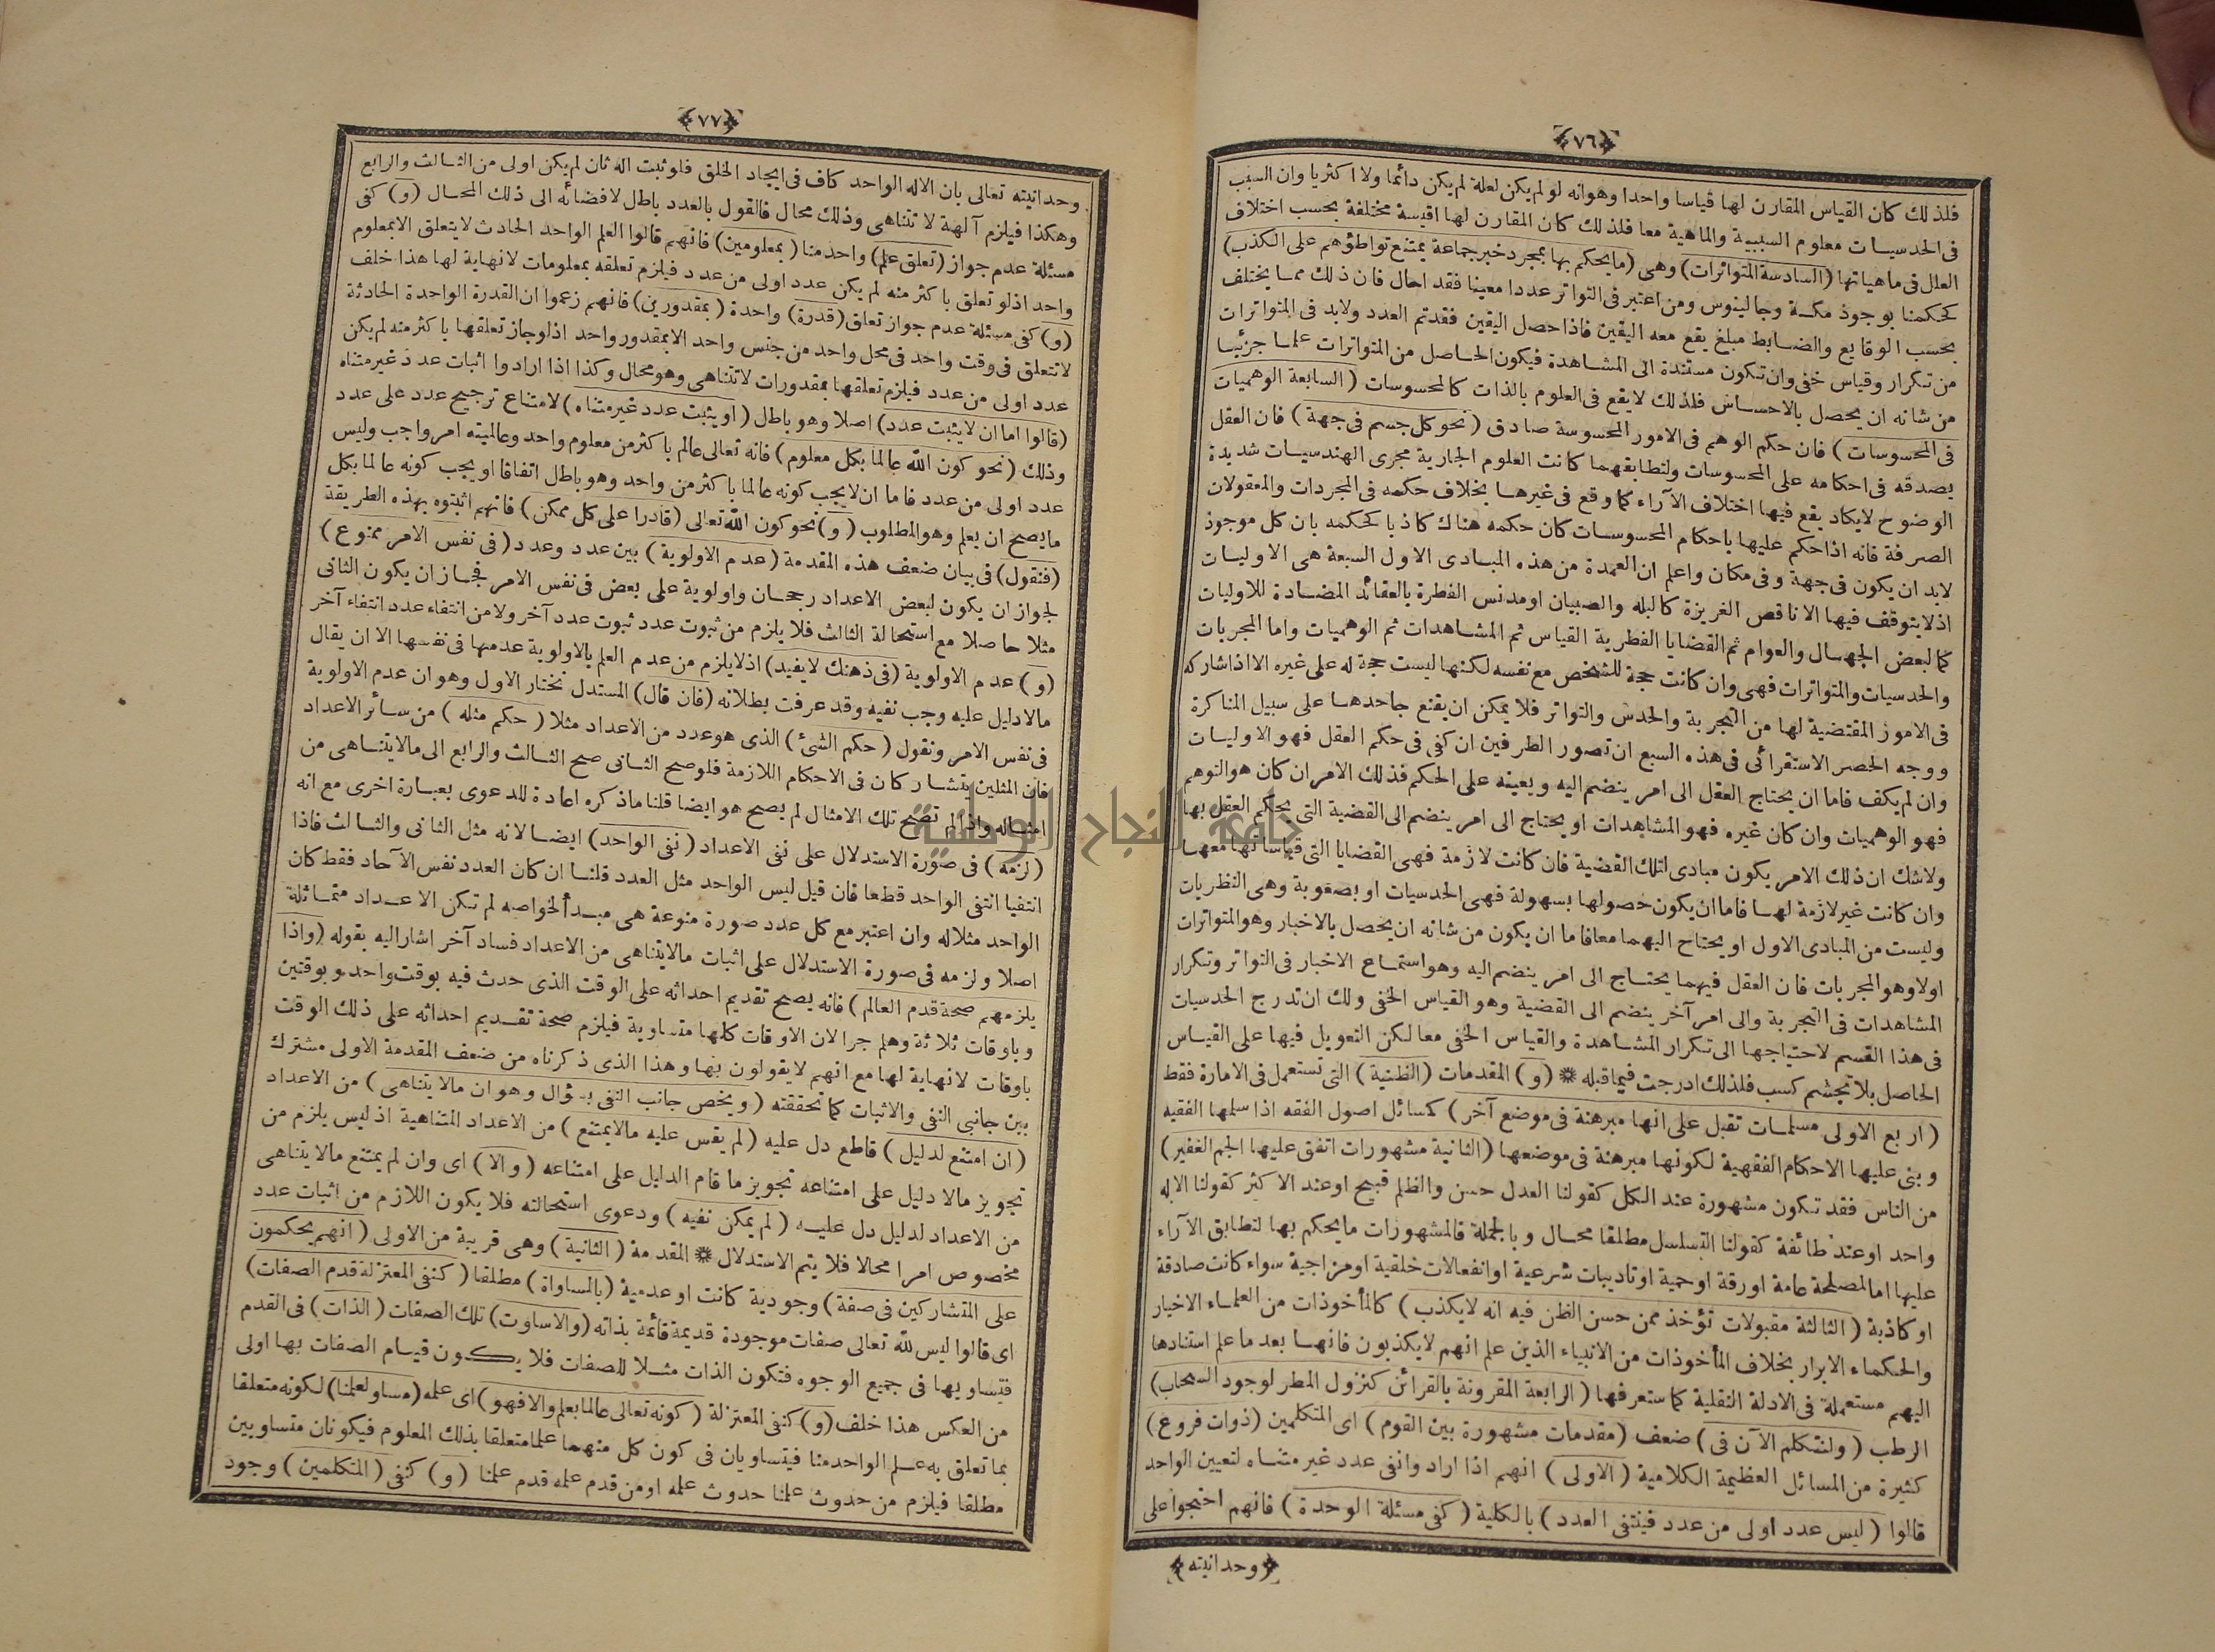 ﴿٧٦﴾
فلذلك كان القياس المقارن لها قياسا واحدا وهوانه لو لم يكن لعلة لم يكن دائما ولا اكثريا وان السبب
فى الحدسيات معلوم السببية والماهية معا فلذلك كان المقارن لها اقيسة مختلفة بحسب اختلاف
العلل فى ماهياتها (السادسة المتواترات) وهى (ما يحكم بها بمجرد خبر جماعة يمتنع تواطؤهم على الكذب)
كحكمنا بوجوذ مكة وجالينوس ومن اعتبر فى التواتر عددا معينا فقد احال فان ذلك مما يختلف
بحسب الوقايع والضابط مبلغ يقع معه اليقين فاذا حصل اليقين فقدتم العدد ولابد فى المتواترات
من تكرار وقياس خفى وان تكون مستندة الى المشاهدة فيكون الحاصل من المتواترات علما جزئيا
من شانه ان يحصل بالاحساس فلذلك لا يقع فى العلوم بالذات كالمحسوسات (السابعة الوهميات
فى المحسوسات) فان حكم الوهم فى الامور المحسوسة صادق (نحو كل جسم فى جهة) فان العقل
يصدقه فى احكامه على المحسوسات ولتطابقهما كانت العلوم الجارية مجرى الهندسيات شديدة
الوضوح لا يكاد يقع فيها اختلاف الآراء كما وقع فى غيرها بخلاف حكمه فى المجردات والمعقولات
الصرفة فانه اذا حكم عليها باحكام المحسوسات كان حكمه هناك كاذبا كحكمه بان كل موجوذ
لابد ان يكون فى جهة وفى مكان واعلم ان العمدة من هذه المبادى الاول السبعة هى الاوليات
اذلا يتوقف فيها الا ناقص الغريزة كالبله والصبيان اومدنس الفطرة بالعقائد المضادة للاوليات
كما لبعض الجهال والعوام ثم القضايا الفطرية القياس ثم المشاهدات ثم الوهميات واما المجربات
والحدسيات والمتواترات فهى وان كانت حجة للشخص مع نفسه لكنها ليست حجة له على غيره الا اذا شاركه
فى الاموز المقتضية لها من التجربة والحدس والتواتر فلا يمكن ان يقنع جاحدها على سبيل المناكرة
ووجه الحصر الاستقرائى فى هذه السبع ان تصور الطرفين ان كفى فى حكم العقل فهو الاوليات
وان لم يكف فاما ان يحتاج العقل الى امر ينضم اليه ويعينه على الحكم فذلك الامر ان كان هو التوهم
فهو الوهميات وان كان غيره فهو المشاهدات او يحتاج الى امر ينضم الى القضية التى يحكم العقل بها
ولاشك ان ذلك الامر يكون مبادى لتلك القضية فان كانت لازمة فهى القضايا التى قياساتها معها
وان كانت غير لازمة لها فاما ان يكون حصولها بسهولة فهى الحدسيات او بصعوبة وهى النظريات
وليست من المبادى الاول او يحتاج اليهما معا فاما ان يكون من شانه ان يحصل بالاخبار وهو المتواترات
اولا وهو المجربات فان العقل فيهما يحتاج الى امر ينضم اليه وهو استماع الاخبار فى التواتر وتكرار
المشاهدات فى التجربة والى امر آخر ينضم الى القضية وهو القياس الخفى ولك ان تدرج الحدسيات
فى هذا القسم لاحتياجها الى تكرار المشاهدة والقياس الخفى معا لكن التعويل فيها على القياس
الحاصل بلا تجشم كسب فلذلك ادرجت فيما قبله ❁ (و) المقدمات (الظنية) التى تستعمل فى الامارة فقط
(اربع الاولى مسلمات تقبل على انها مبرهنة فى موضع آخر) كمسائل اصول الفقه اذا سلمها الفقيه
وبنى عليها الاحكام الفقهية لكونها مبرهنة فى موضعها (الثانية مشهورات اتفق عليها الجم الغفير)
من الناس فقد تكون مشهورة عند الكل كقولنا العدل حسن والظلم قبيح اوعند الاكثر كقولنا الاله
واحد اوعند طائفة كقولنا التسلسل مطلقا محال وبالجملة فالمشهورات ما يحكم بها لتطابق الآراء
عليها اما لمصلحة عامة اورقة اوحمية اوتاديبات شرعية او انفعالات خلقية اومزاجية سواء كانت صادقة
اوكاذبة (الثالثة مقبولات تؤخذ ممن حسن الظن فيه انه لا يكذب) كالمأخوذات من العلماء الاخيار
والحكماء الابرار بخلاف المأخوذات من الانبياء الذين علم انهم لا يكذبون فانها بعد ما علم استنادها
اليهم مستعملة فى الادلة النقلية كما ستعرفها (الرابعة المقرونة بالقرائن كنزول المطر لوجود السحاب)
الرطب (ولنتكلم الآن فى) ضعف (مقدمات مشهورة بين القوم) اى المتكلمين (ذوات فروع)
كثيرة من المسائل العظيمة الكلامية (الاولى) انهم اذا اراد وانفى عدد غير متناه لتعيين الواحد
قالوا (ليس عدد اولى من عدد فينتفى العدد) بالكلية (كفى مسئلة الوحدة) فانهم احتجوا على
﴿وحدانيته﴾
﴿٧٧﴾
وحدانيته تعالى بان الاله الواحد كاف فى ايجاد الخلق فلو ثبت اله ثان لم يكن اولى من الثالث والرابع
وهكذا فيلزم آلهة لا تتناهى وذلك محال فالقول بالعدد باطل لافضائه الى ذلك المحال (و) كفى
مسئلة عدم جواز (تعلق علم) واحد منا (بمعلومين) فانهم قالوا العلم الواحد الحادث لا يتعلق الا بمعلوم
واحد اذلو تعلق باكثر منه لم يكن عدد اولى من عدد فيلزم تعلقه بمعلومات لا نهاية لها هذا خلف
(و) كفى مسئلة عدم جواز تعلق (قدرة) واحدة (بمقدورين) فانهم زعموا ان القدرة الواحدة الحادثة
لا تتعلق فى وقت واحد فى محل واحد من جنس واحد الا بمقدور واحد اذلو جاز تعلقها باكثر منه لم يكن
عدد اولى من عدد فيلزم تعلقها بمقدورات لا تتناهى وهو محال وكذا اذا ارادوا اثبات عدد غير متناه
(قالوا اما ان لا يثبت عدد) اصلا وهو باطل (او يثبت عدد غير متناه) لامتناع ترجيح عدد على عدد
وذلك (نحو كون الله عالما بكل معلوم) فانه تعالى عالم باكثر من معلوم واحد وعالميته امر واجب وليس
عدد اولى من عدد فاما ان لا يجب كونه عالما باكثر من واحد وهو باطل اتفاقا او يجب كونه عالما بكل
ما يصح ان يعلم وهو المطلوب (و) نحو كون الله تعالى (قادرا على كل ممكن) فانهم اثبتوه بهذه الطريقة
(فنقول) فى بيان ضعف هذه المقدمة (عدم الاولوية) بين عدد وعدد (فى نفس الامر ممنوع)
لجواز ان يكون لبعض الاعداد رجحان واولوية على بعض فى نفس الامر فجاز ان يكون الثانى
مثلا حاصلا مع استحالة الثالث فلا يلزم من ثبوت عدد ثبوت عدد آخر ولا من انتفاء عدد انتفاء آخر
(و) عدم الاولوية (فى ذهنك لا يفيد) اذلا يلزم من عدم العلم بالاولوية عدمها فى نفسها الا ان يقال
مالا دليل عليه وجب نفيه وقد عرفت بطلانه (فان قال) المستدل نختار الاول وهو ان عدم الاولوية
فى نفس الامر ونقول (حكم الشئ) الذى هو عدد من الاعداد مثلا (حكم مثله) من سائر الاعداد
فان المثلين يتشاركان فى الاحكام اللازمة فلو صح الثانى صح الثالث والرابع الى ما لا يتناهى من
امثاله واذا لم تصح تلك الامثال لم يصح هو ايضا قلنا ما ذكره اعادة للدعوى بعبارة اخرى مع انه
(لزمه) فى صورة الاستدلال على نفى الاعداد (نفى الواحد) ايضا لانه مثل الثانى والثالث فاذا
انتفيا انتفى الواحد قطعا فان قيل ليس الواحد مثل العدد قلنا ان كان العدد نفس الآحاد فقط كان
الواحد مثلا له وان اعتبر مع كل عدد صورة منوعة هى مبدأ لخواصه لم تكن الاعداد متماثلة
اصلا ولزمه فى صورة الاستدلال على اثبات ما لا يتناهى من الاعداد فساد آخر اشار اليه بقوله (واذا
يلزمهم صحة قدم العالم) فانه يصح تقديم احداثه على الوقت الذى حدث فيه بوقت واحد و بوقتين
وباوقات ثلاثة وهلم جرا لان الاوقات كلها متساوية فيلزم صحة تقديم احداثه على ذلك الوقت
باوقات لا نهاية لها مع انهم لا يقولون بها وهذا الذى ذكرناه من ضعف المقدمة الاولى مشترك
بين جانبى النفى والاثبات كما تحققته (ويخص جانب النفى بسؤال وهو ان ما لا يتناهى) من الاعداد
(ان امتنع لدليل) قاطع دل عليه (لم يقس عليه ما لا يمتنع) من الاعداد المتناهية اذ ليس يلزم من
تجويز مالا دليل على امتناعه تجويز ما قام الدليل على امتناعه (والا) اى وان لم يمتنع ما لا يتناهى
من الاعداد لدليل دل عليه (لم يمكن نفيه) ودعوى استحالته فلا يكون اللازم من اثبات عدد
مخصوص امرا محالا فلا يتم الاستدلال ❁ المقدمة (الثانية) وهى قريبة من الاولى (انهم يحكمون
على المتشاركين فى صفة) وجودية كانت او عدمية (بالمساواة) مطلقا (كنفى المعتزلة قدم الصفات)
اى قالوا ليس لله تعالى صفات موجودة قديمة قائمة بذاته (والا ساوت) تلك الصفات (الذات) فى القدم
فتساويها فى جميع الوجوه فتكون الذات مثلا للصفات فلا يكون قيام الصفات بها اولى
من العكس هذا خلف (و) كنفى المعتزلة (كونه تعالى عالما بعلم والا فهو) اى علمه (مساو لعلمنا) لكونه متعلقا
بما تعلق به علم الواحد منا فيتساويان فى كون كل منهما علما متعلقا بذلك المعلوم فيكونان متساويين
مطلقا فيلزم من حدوث علمنا حدوث علمه اومن قدم علمه قدم علمنا (و) كنفى (المتكلمين) وجود
جامعة النجاح الوطنية